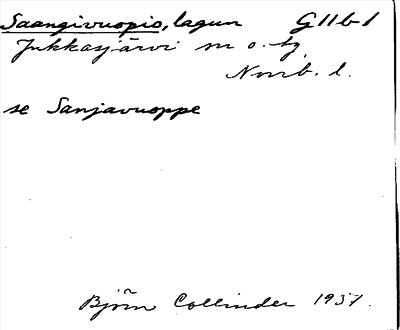 Saangivuopio, lagun G 11 b 1
Jukkasjärvi sn o. tg.
Norrb. l.
se Sanjavuoppe
Björn Collinder 1937.